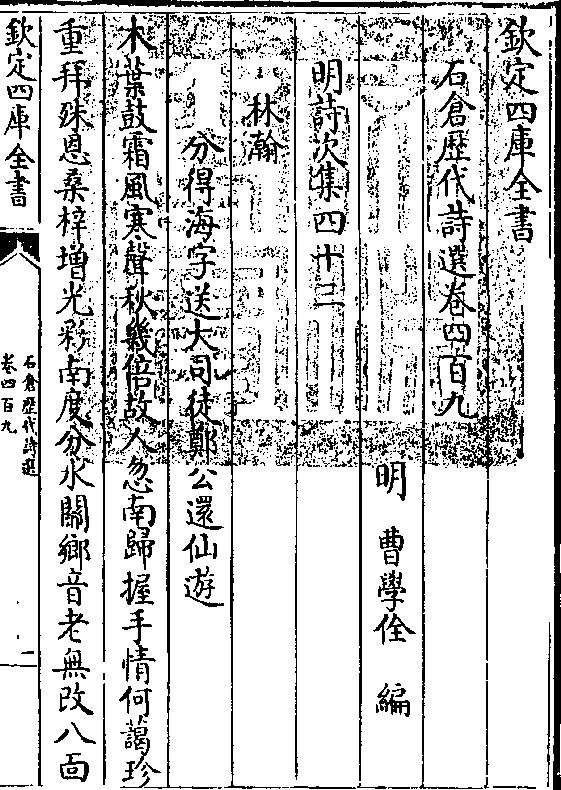 欽定四庫全書
石倉歴代詩選卷四百九
明 曹學佺 編
明詩次集四十三
林瀚
分得海字送大司徒鄭公還仙遊
木葉鼓霜風寒聲秋幾倍故人忽南歸握手情何藹珍
重拜殊恩桑梓增光彩南度分水關鄉音老無改八面
欽定四庫全書
石倉歴代詩選
卷四百九
一